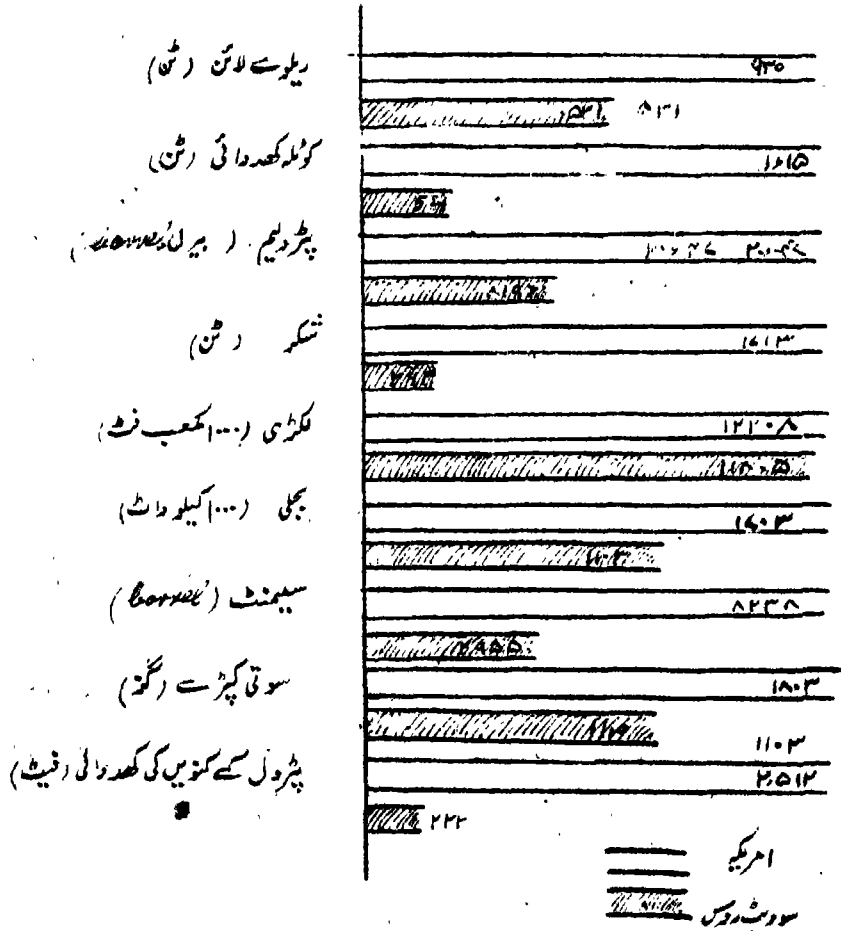 ریلوے لائن (ٹن)
۹۳۰
۵۳۱ ۵۳۱
کوئلہ کھدوائی (ٹن)
پٹرولیم (بیرل barrel)
شکر (ٹن)
۱۶۱۳
لکڑی (۱۰۰۰ مکعب فٹ)
۱۲۲۰۸
بجلی (۱۰۰۰ کیلو واٹ)
۱۶۰۳
سیمنٹ (barrel)
۸۲۳۸
۲۹۵۵
سوتی کپڑے (گز)
۱۸۰۳
۱۱۰۳
پٹرول کے کنویں کی کھدوائی (فیٹ)
۲،۵۱۲
۲۲۲
امریکہ
سوویٹ روس